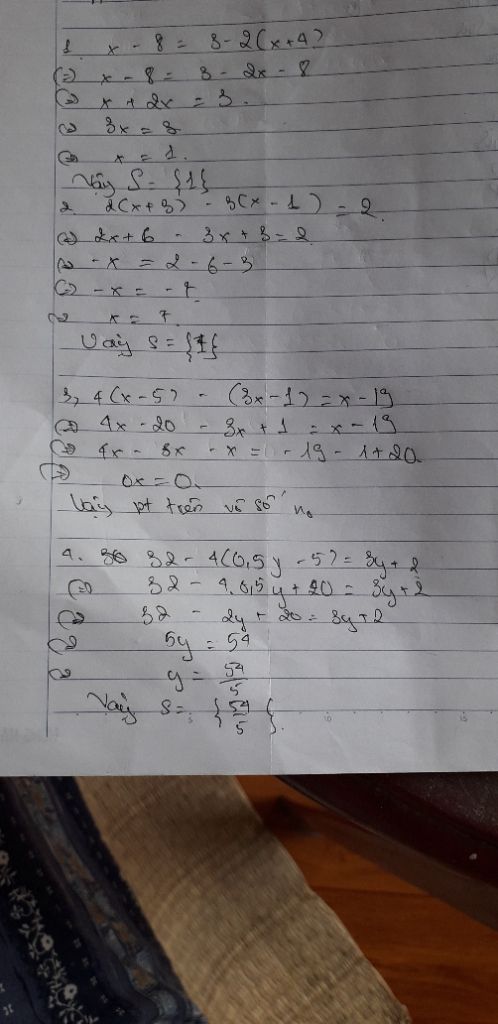 1. x - 8 = 3 - 2(x+4)
(=) x - 8 = 3 - 2x - 8
(=) x + 2x = 3.
(=) 3x = 3
(=) x = 1.
Vậy S = {1}
2. 2(x+3) - 3(x - 1) = 2
(=) 2x + 6 - 3x + 3 = 2
(=) - x = 2 - 6 - 3
(=) - x = - 7
(=) x = 7.
Vậy S = {7}
3, 4(x - 5) - (3x - 1) = x - 19
(=) 4x - 20 - 3x + 1 = x - 19
(=) 4x - 3x - x = - 19 - 1 + 20
(=) 0x = 0.
Vậy pt trên vô số no
4. 32 - 4(0,5y - 5) = 3y + 2
(=) 32 - 4.0,5y + 20 = 3y + 2
(=) 32 - 2y + 20 = 3y + 2
(=) 5y = 54
(=) y = 54/5
Vậy S = {54/5}.